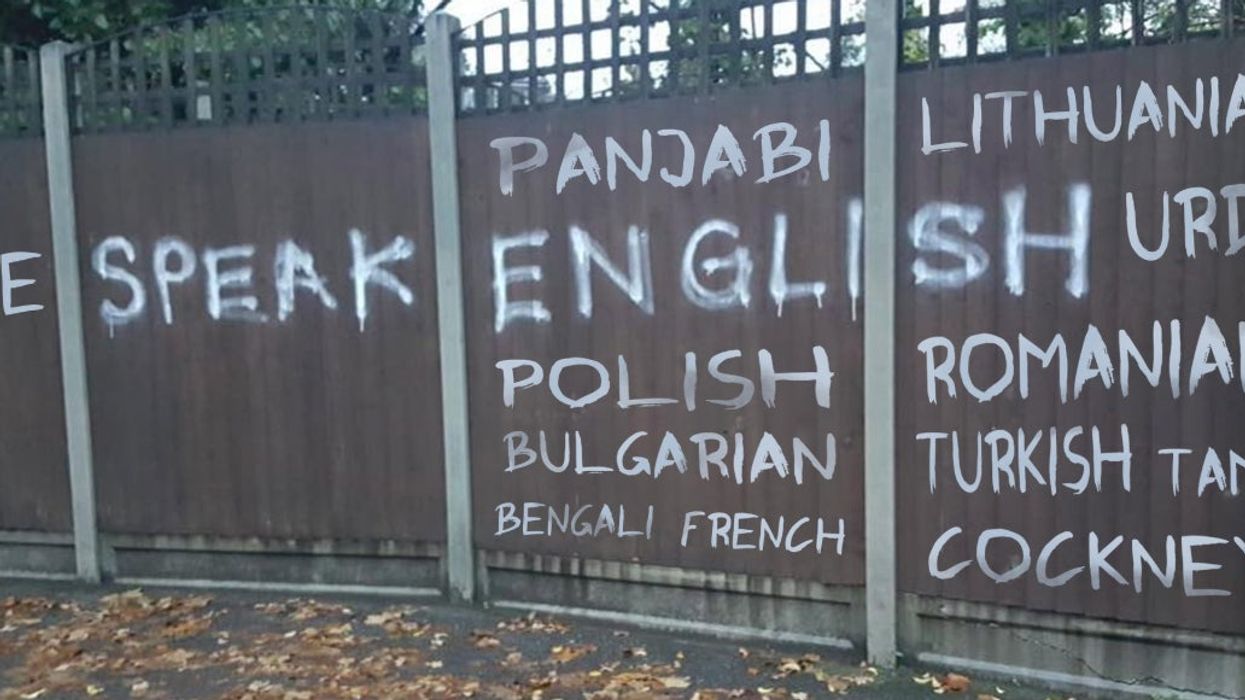 PANJABI LITHUANIA
E SPEAK ENGLISH URD
POLISH ROMANIA
BULGARIAN TURKISH
BENGALI FRENCH COCKNEY